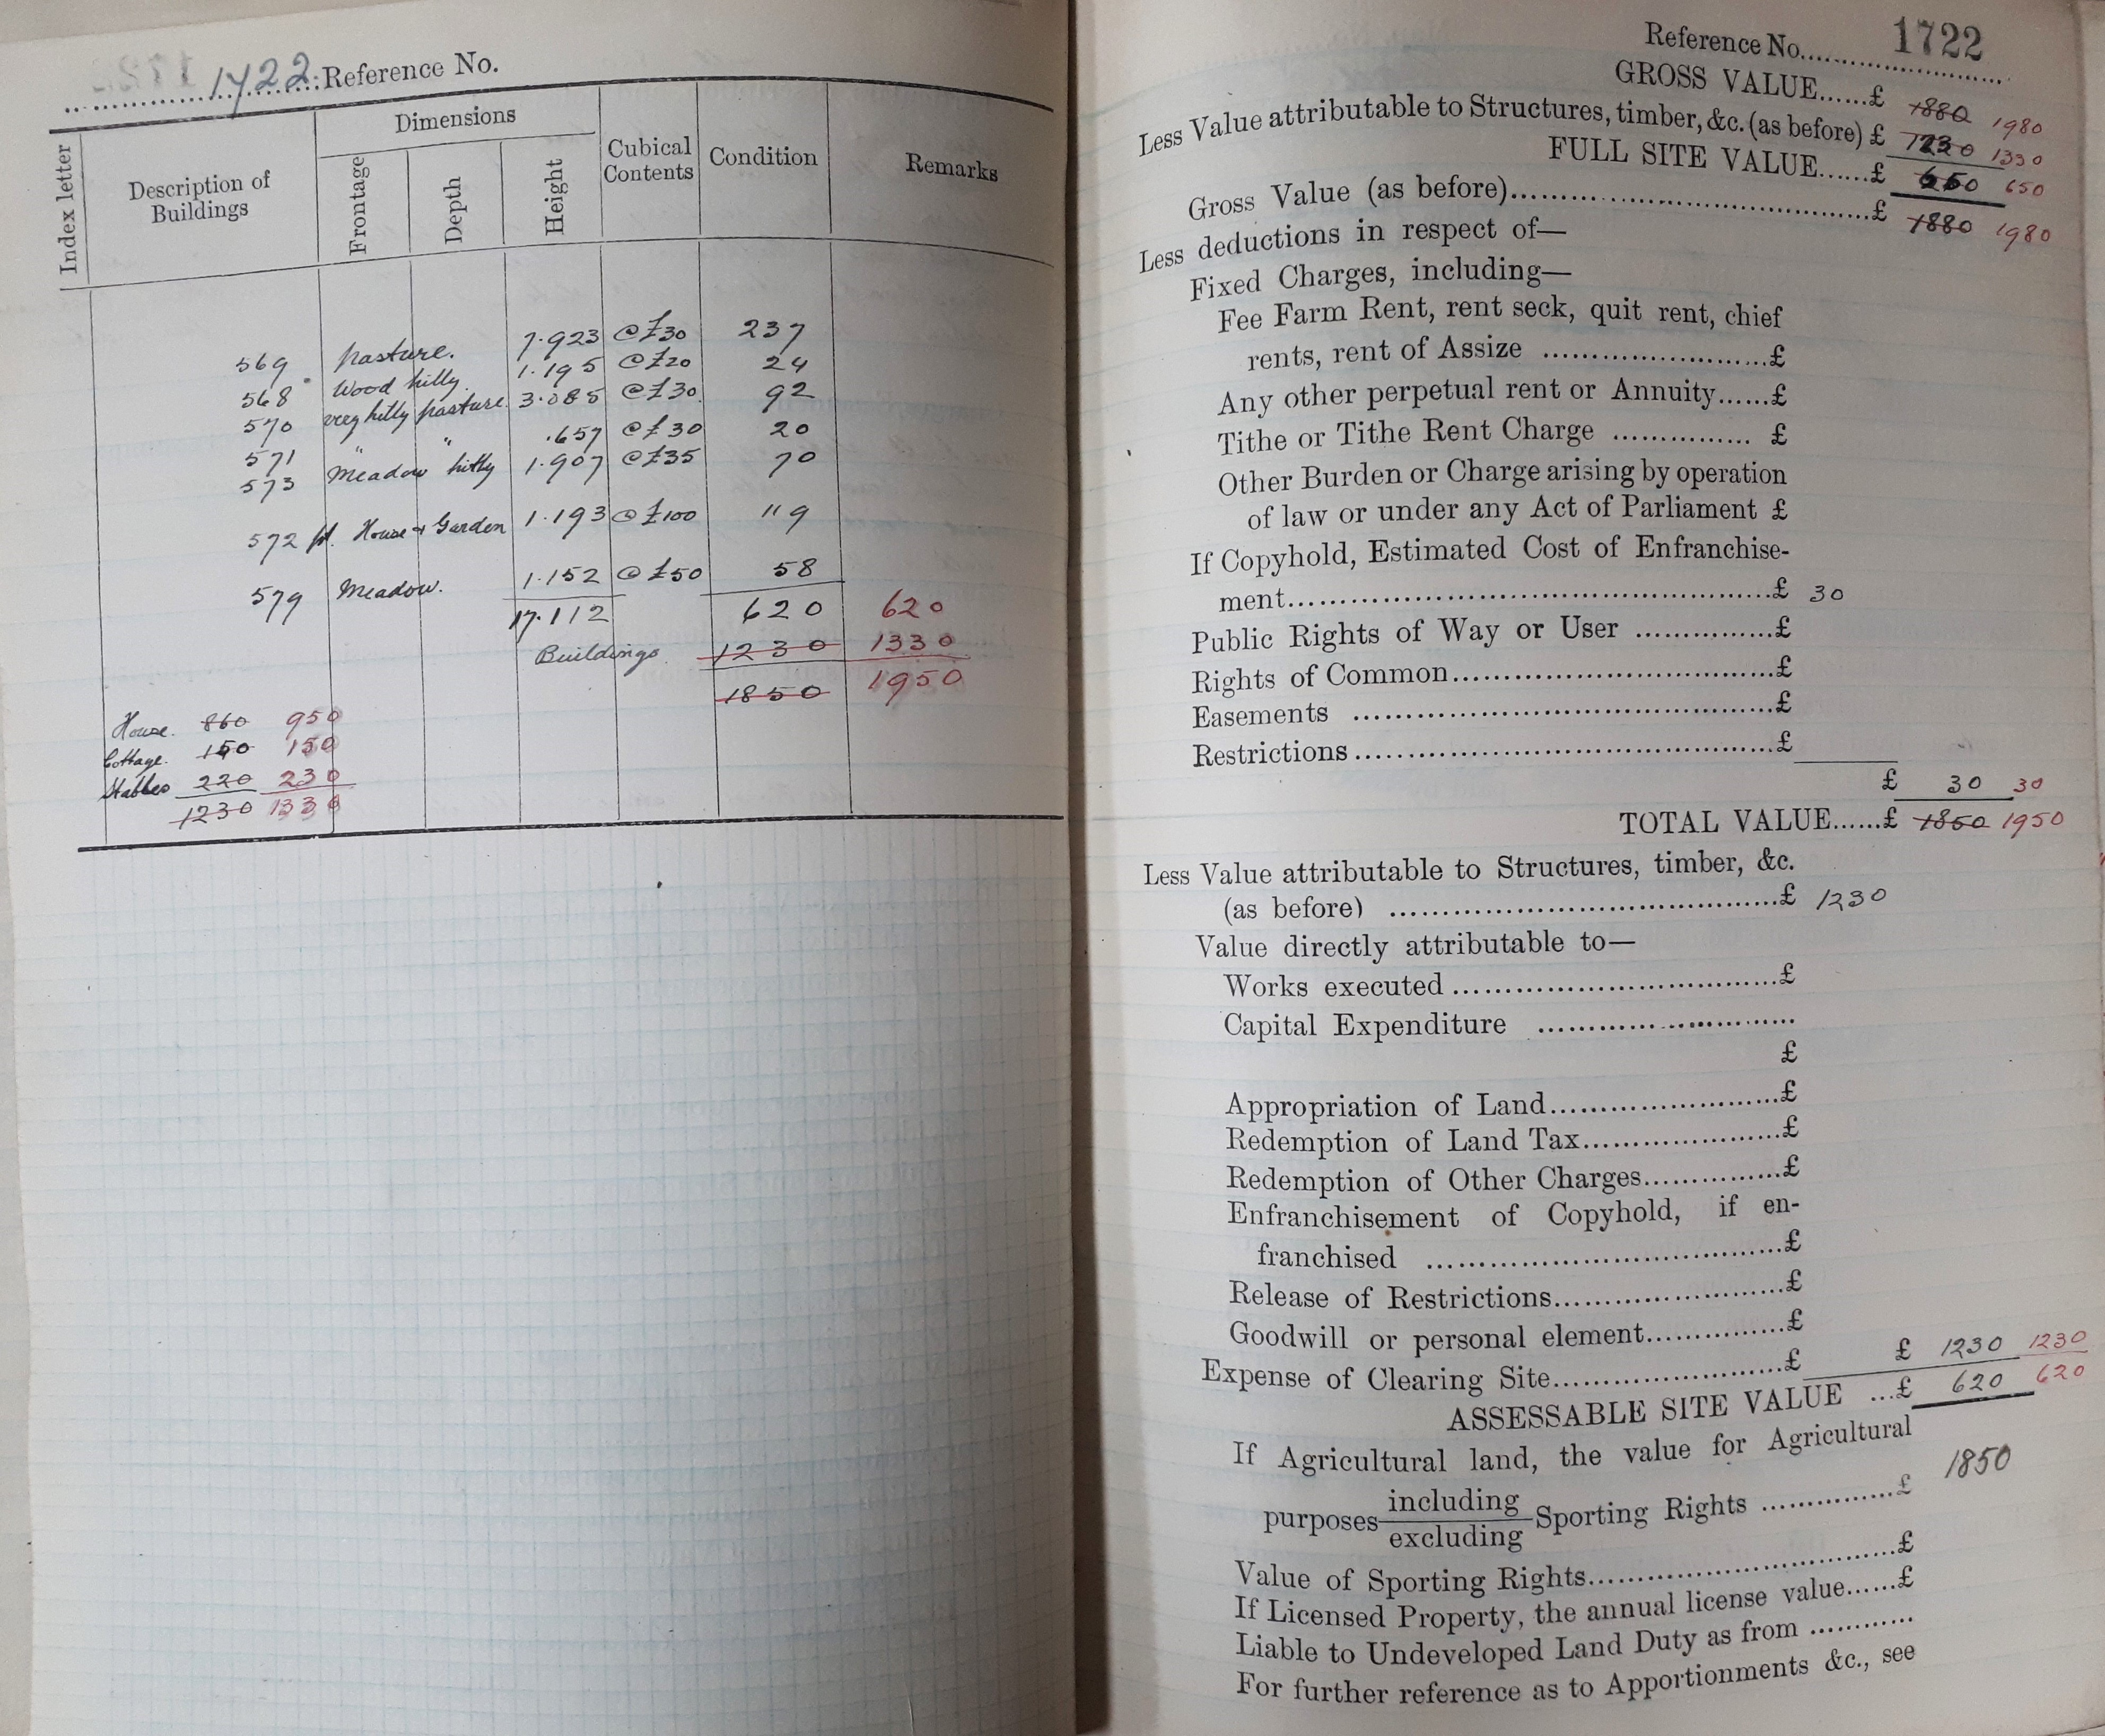 1722 Reference No.
Index letter
Description of Buildings
Dimensions
Frontage
Depth
Height
Cubical Contents
Condition
Remarks
569 pasture. 7.923 @ £30 237
568 Wood hilly. 1.195 @ £20 24
570 very hilly pasture. 3.085 @ £30 92
571 " " .657 @ £30 20
573 Meadow hilly 1.907 @ £35 70
572 pt. House & Garden 1.193 @ £100 119
579 Meadow. 1.152 @ £50 58
17.112 620 620
Buildings. 1230 1330
1850 1950
House. 860 950
Cottage. 150 150
Stables 220 230
1230 1330
Reference No. 1722
GROSS VALUE......£ 1880 1980
Less Value attributable to Structures, timber, &c. (as before) £ 1230 1330
FULL SITE VALUE......£ 650 650
Gross Value (as before)......£ 1880 1980
Less deductions in respect of—
Fixed Charges, including—
Fee Farm Rent, rent seck, quit rent, chief
rents, rent of Assize ......£
Any other perpetual rent or Annuity......£
Tithe or Tithe Rent Charge ...... £
Other Burden or Charge arising by operation
of law or under any Act of Parliament £
If Copyhold, Estimated Cost of Enfranchise-
ment......£ 30
Public Rights of Way or User ......£
Rights of Common......£
Easements ......£
Restrictions......£
£ 30 30
TOTAL VALUE......£ 1850 1950
Less Value attributable to Structures, timber, &c.
(as before) ......£ 1230
Value directly attributable to—
Works executed ......£
Capital Expenditure ......
£
Appropriation of Land......£
Redemption of Land Tax......£
Redemption of Other Charges......£
Enfranchisement of Copyhold, if en-
franchised ......£
Release of Restrictions......£
Goodwill or personal element......£
Expense of Clearing Site......£ £ 1230 1230
ASSESSABLE SITE VALUE ...£ 620 620
If Agricultural land, the value for Agricultural
purposes including excluding Sporting Rights ......£ 1850
Value of Sporting Rights......£
If Licensed Property, the annual license value......£
Liable to Undeveloped Land Duty as from ......
For further reference as to Apportionments &c., see